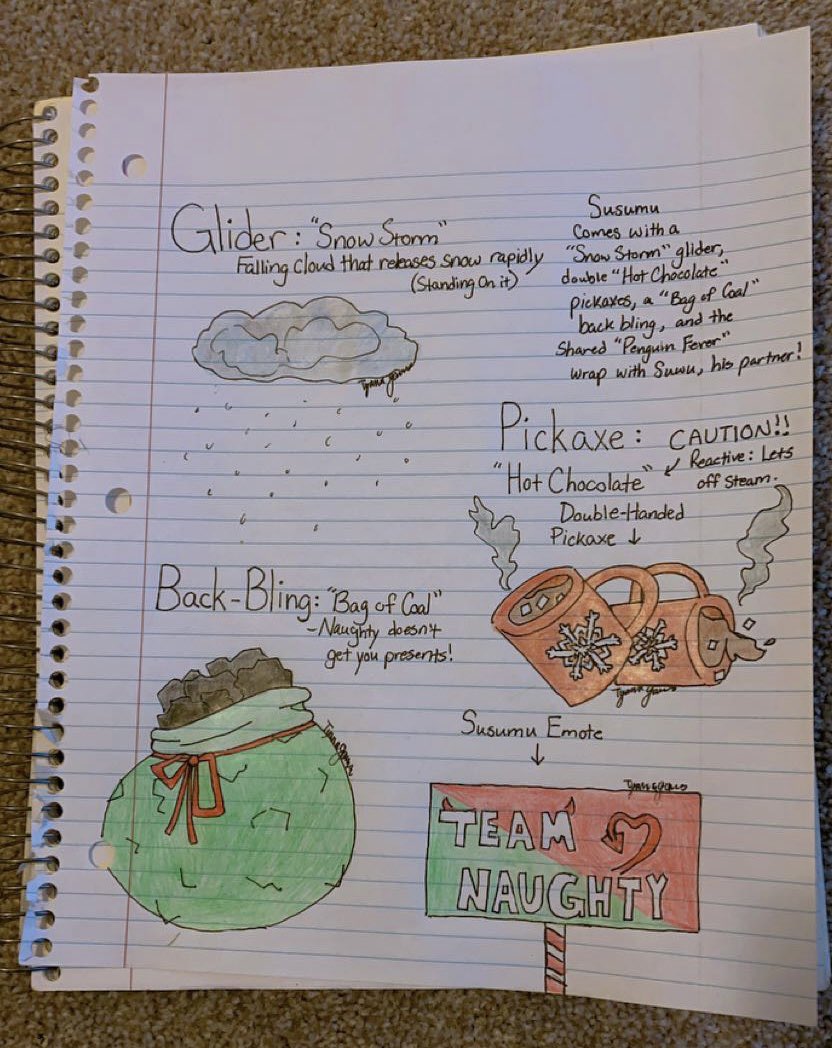 Glider: "Snow Storm"
Falling cloud that releases snow rapidly
(Standing On it)
Susumu
Comes with a
"Snow Storm" glider,
double "Hot Chocolate"
pickaxes, a "Bag of Coal"
back bling, and the
Shared "Penguin Fever"
wrap with Suwu, his partner!
Pickaxe: CAUTION!!
"Hot Chocolate" ↙ Reactive: Lets
off Steam.
Double-Handed
Pickaxe ↓
Back-Bling: "Bag of Coal"
-Naughty doesn't
get you presents!
Susumu Emote
↓
TEAM
NAUGHTY